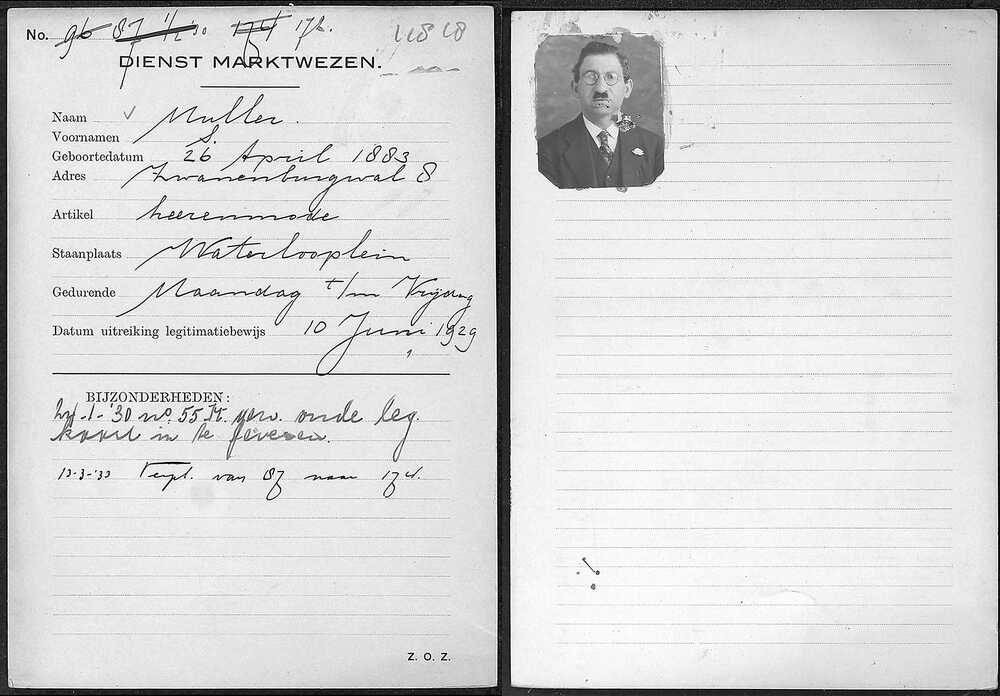 No. 96 87 1/2 30 17d 17d.
DIENST MARKTWEZEN.
Naam Muller.
Voornamen S.
Geboortedatum 26 April 1883
Adres Zwanenburgwal 8
Artikel heerenmode
Staanplaats Waterlooplein
Gedurende Maandag t/m Vrijdag
Datum uitreiking legitimatiebewijs 10 Juni 1929
BIJZONDERHEDEN:
-1-'30 no. 55 M. oude leg.
kaart in te leveren.
13-3-'33 Verpl. van 87 naar 17d.
Z. O. Z.